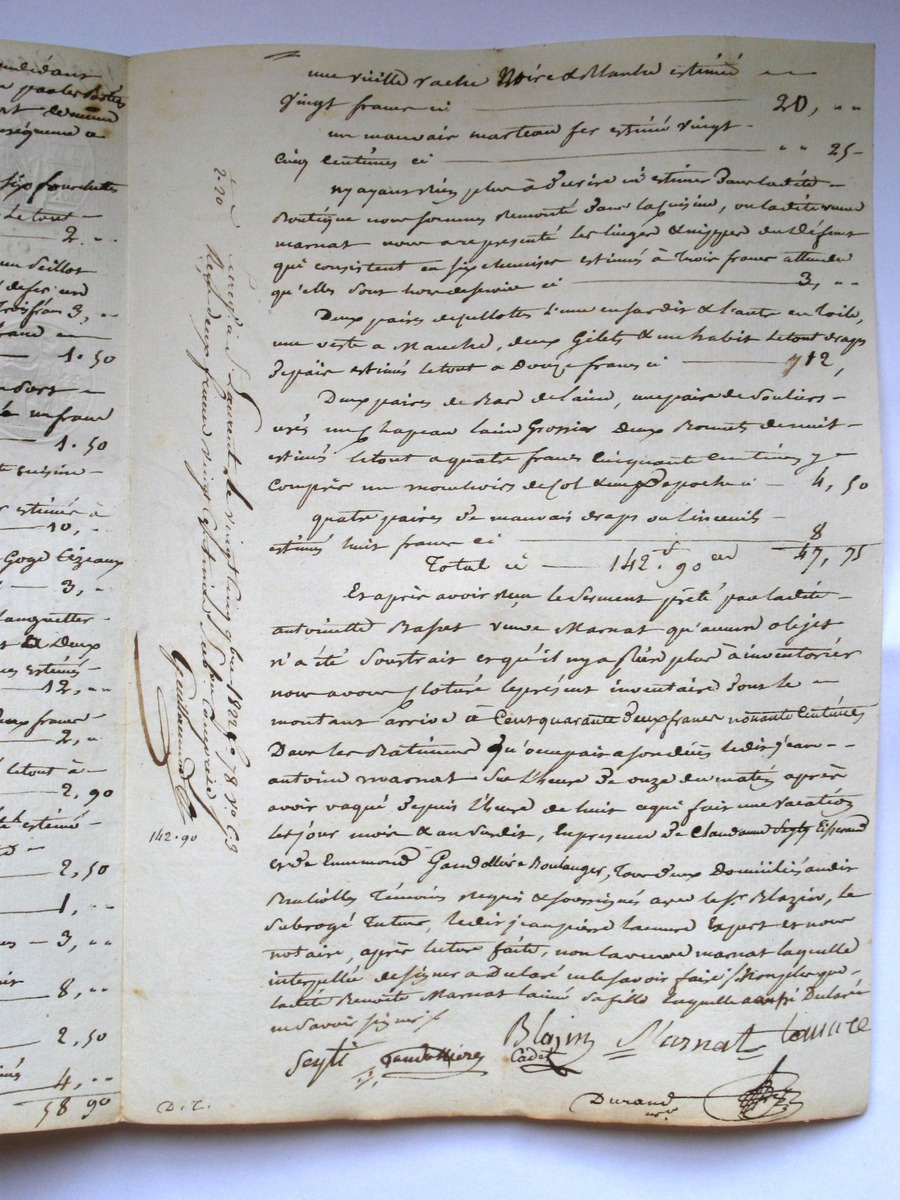 une vieille vache Noire & blanche estimée
Vingt francs ci 20, ..
un mauvais marteau fer estimé vingt
cinq centimes ci .. 25
n'y ayant Rien plus à décrire ni estimer dans ladite
Boutique nous sommes Remonté dans la cuisine, ou ladite veuve
marnat nous a representé les linges & nippes du Défunt
qui consistent en six chemises estimés à trois francs attendu
qu'elles sont hors de service ci 3, ..
Deux paires de cullottes l'une en sardis & l'autre en toile,
une veste a Manche, deux Gilets & un habit le tout draps
de pais estimés le tout a Douze francs ci 12,
Deux paires de Bas de laine, une paire de Souliers
usés un Chapeau laine Grossier Deux Bonnets de nuit
estimés le tout a quatre francs cinquante centimes y
compris un mouchoirs de Col & un de poche ci 4, 50
quatre paires de mauvais draps ou linceuils
estimés huit francs ci 8
47, 75
Total ci 142 f. 90 cen
Et après avoir Reçu le Serment prêté par ladite
antoinette Basset veuve Marnat qu'aucun objet
n'a été Soustrait et qu'il n'y a Rien plus à inventorier
nous avons Cloturé le présent inventaire dont le
montant arrive à Cent quarante deux francs nonante Centimes
Dans les Batimens qu'occupait a son décès ledit jean
antoine marnat Sur l'heure de onze du matin après
avoir vaqué depuis l'heure de huit a qui fait une vacation
les jour mois & an susdit, En presence de Claudaume Seyti Tisserand
et de Ennemond Gandollière Boulanger, Tous deux Domiciliés audit
Brullioles Témoins Requis & soussignés avec le Sr Blazin, le
Subrogé Tuteur, ledit jean pierre lamure Expert et nous
notaire, après lecture faite, non la veuve marnat laquelle
interpellée de signer a Déclaré ne le savoir faire
ladite Benoite Marnat l'ainé sa fille laquelle a aussi Déclaré
Seyti Gandollière Blazin Cadet Marnat lamure
Durand
Enregré à St Laurent le vingt cinq 9bre 1820 fo 78 Vo C 3
Reçu deux francs vingt centimes Subvon Comprise
Guillermond
2.20
142.90
D. T.
six fourchettes
Le tout
2. ..
un Seillot
3, ..
1.50
1.50
cuisine
estimés à
10, ..
3, ..
Deux
estimés
12, ..
deux francs
2, ..
le tout à
2, 90
estimé
2, 50
1, ..
3, ..
8, ..
2, 50
4, ..
58 90